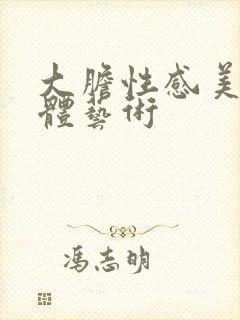 大膽性感美
體藝術
馮志明